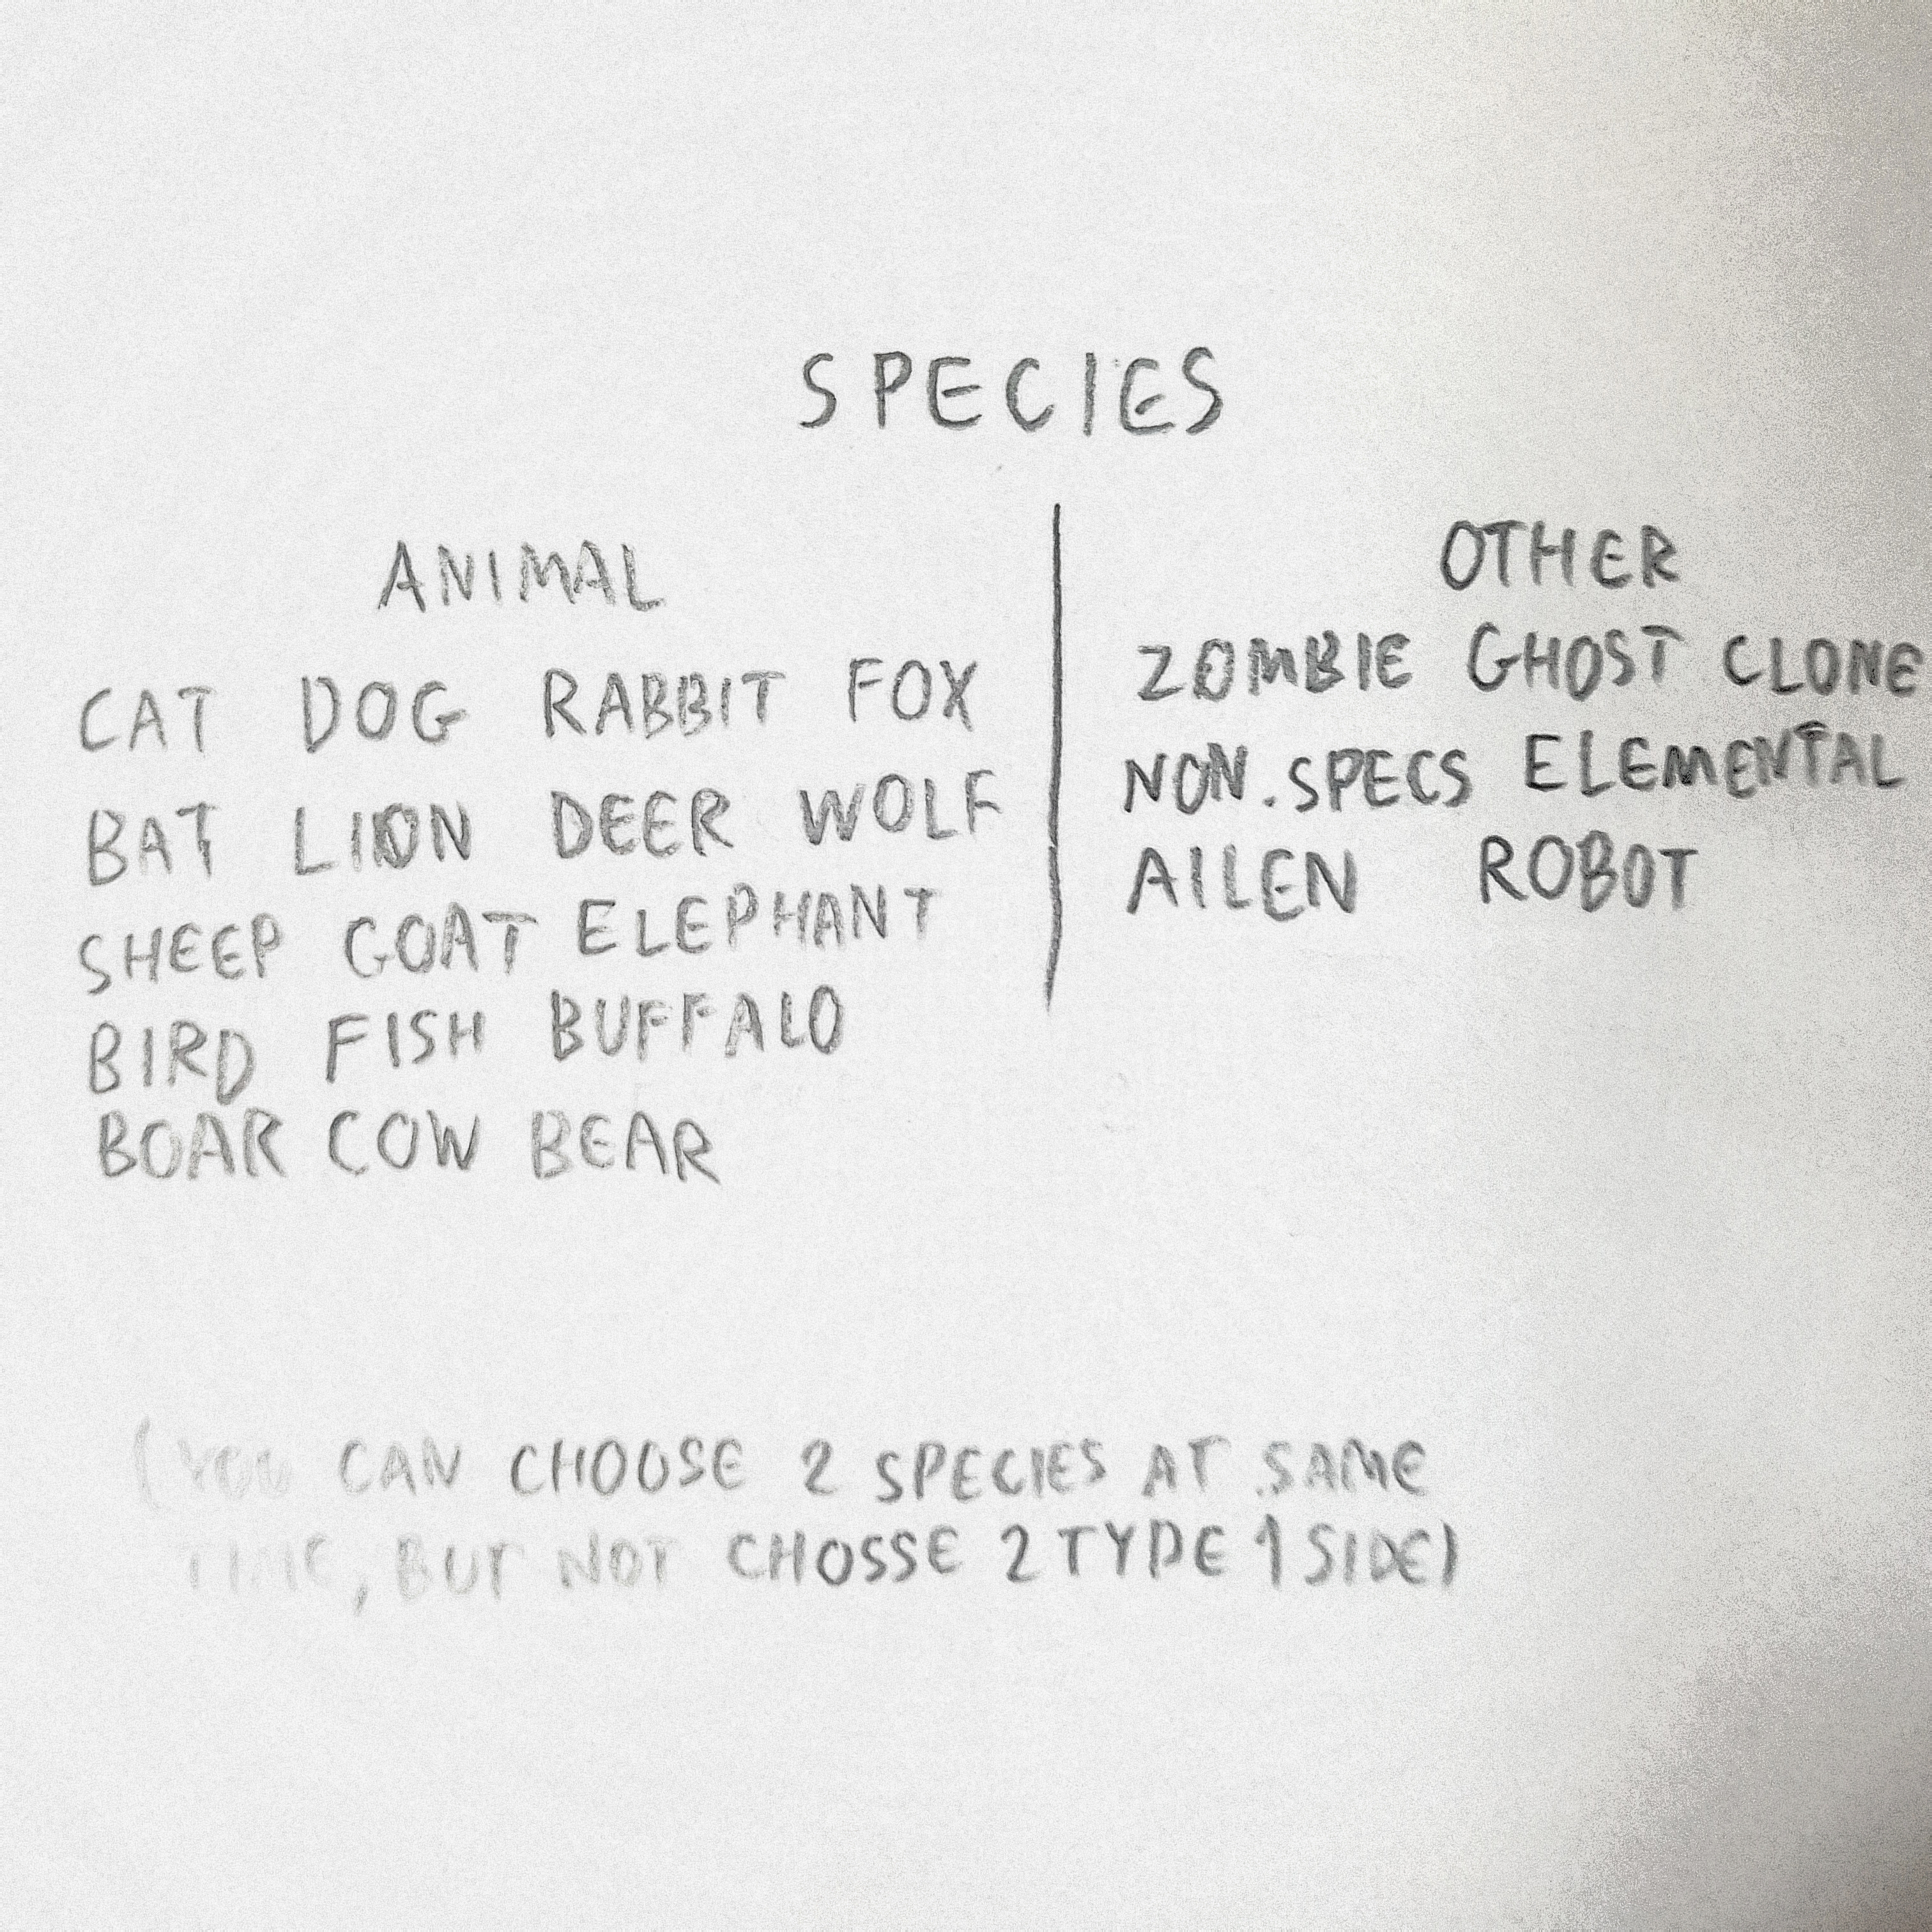 SPECIES
ANIMAL
CAT DOG RABBIT FOX
BAT LION DEER WOLF
SHEEP GOAT ELEPHANT
BIRD FISH BUFFALO
BOAR COW BEAR
OTHER
ZOMBIE GHOST CLONE
NON.SPECS ELEMENTAL
AILEN ROBOT
(YOU CAN CHOOSE 2 SPECIES AT SAME
TIME, BUT NOT CHOSSE 2 TYPE 1 SIDE)